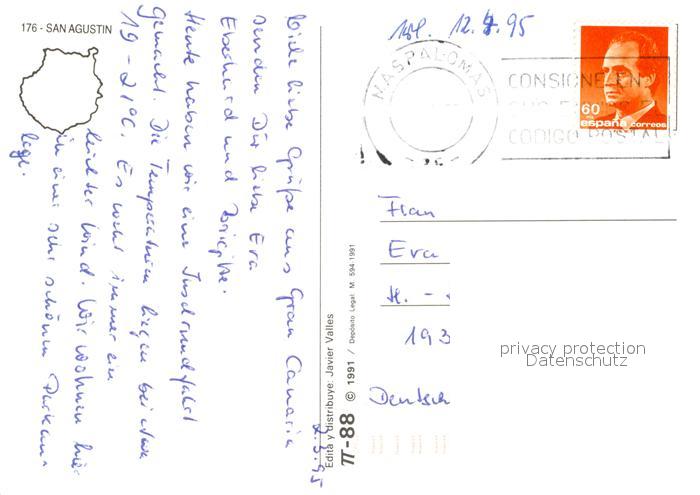 176 - SAN AGUSTIN
Viele liebe Grüße aus Gran Canaria
senden Dir liebe Eva
Eberhard und Brigitte.
Heute haben wir eine Inselrundfahrt
gemacht. Die Temperaturen liegen bei etwa
19 - 21°C. Es weht immer ein
leichter Wind. Wir wohnen hier
in einer sehr schönen Parkan-
lage.
2.3.95
Edita y distribuye: Javier Valles
π-88 © 1991 / Depósito Legal: M 594 1991
12. 95
MASPALOMAS
CONSIGNE EN
CODIGO POSTAL
60
españa correos
Frau
Eva
H. -
193
Deutsch
privacy protection
Datenschutz